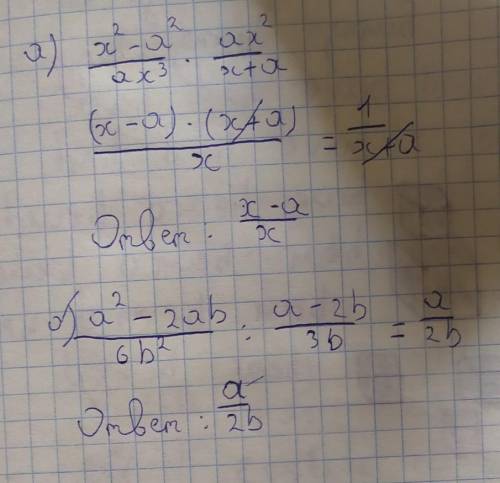 а) (x² - a²)/(ax³) · (ax²)/(x+a)
((x-a)·(x+a))/x = 1/(x+a)
Ответ: (x-a)/x
б) (a² - 2ab)/(6b²) : (a-2b)/(3b) = a/(2b)
Ответ: a/(2b)